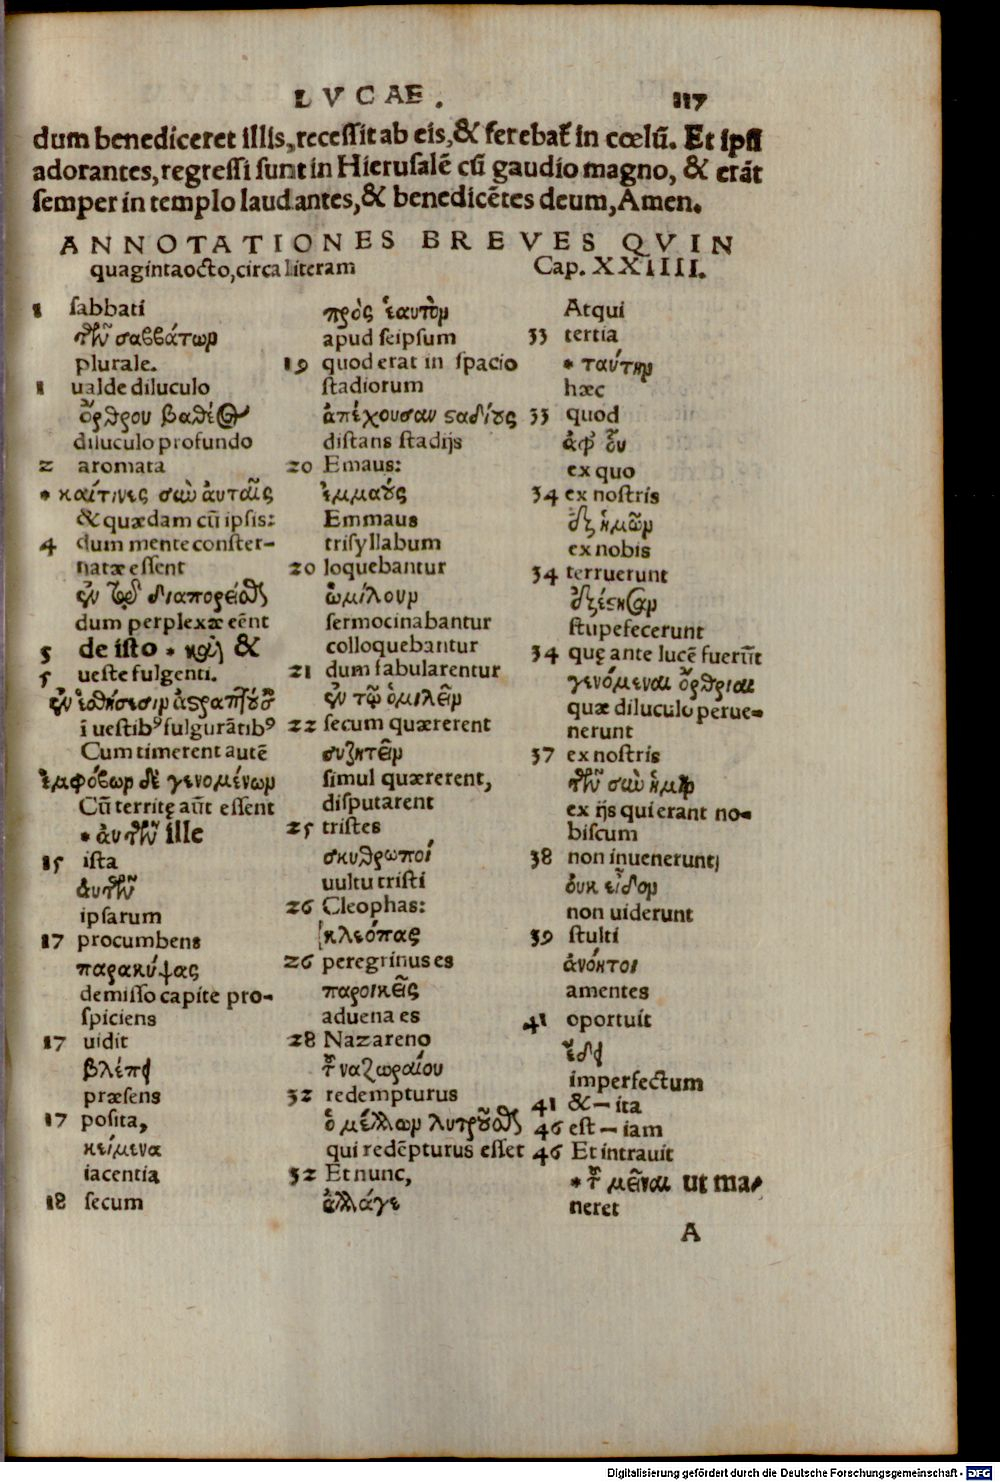 LVCAE.
117
dum benediceret illis, recessit ab eis, & ferebat᷑ in cœlũ. Et ipsi
adorantes, regressi sunt in Hierusalẽ cũ gaudio magno, & erãt
semper in templo laudantes, & benedicẽtes deum, Amen.
ANNOTATIONES BREVES QVIN
quagintaocto, circa literam
Cap. XXIIII.
1 sabbati
τῶν σαββάτων
plurale.
1 ualde diluculo
ὄρθρου βαθέος
diluculo profundo
2 aromata
* καίτινες σὺν ἀυταῖς
& quædam cũ ipsis:
4 dum mente conster-
natæ essent
ἐν τῷ διαπορεῖσθαι
dum perplexæ eẽnt
5 de isto * καὶ &
5 ueste fulgenti.
ἐν ἐσθήσεσιν ἀστραπτούσαις
ĩ uestibꝰ fulgurãtibꝰ
Cum timerent autẽ
ἐμφόβων δὲ γενομένων
Cũ territę aũt essent
* ἀυτῶν ille
15 ista
ἀυτῶν
ipsarum
17 procumbens
παρακύψας
demisso capite pro-
spiciens
17 uidit
βλέπει
præsens
17 posita,
κείμενα
iacentia
18 secum
πρὸς ἑαυτὸν
apud seipsum
19 quod erat in spacio
stadiorum
ἀπέχουσαν σταδίους
distans stadijs
20 Emaus:
ἐμμαούς
Emmaus
trisyllabum
20 loquebantur
ὡμίλουν
sermocinabantur
colloquebantur
21 dum fabularentur
ἐν τῷ ὁμιλεῖν
22 secum quærerent
συζητεῖν
simul quærerent,
disputarent
25 tristes
σκυθρωποί
uultu tristi
26 Cleophas:
κλεόπας
26 peregrinus es
παροικεῖς
aduena es
28 Nazareno
τοῦ ναζωραίου
32 redempturus
ὁ μέλλων λυτροῦσθαι
qui redẽpturus esset
32 Et nunc,
ἀλλάγε
Atqui
33 tertia
* ταύτην
hæc
33 quod
ἀφ᾽ οὗ
ex quo
34 ex nostris
ἐξ ἡμῶν
ex nobis
34 terruerunt
ἐξέστησαν
stupefecerunt
34 quę ante lucẽ fuerũt
γενόμεναι ὄρθριαι
quæ diluculo perue-
nerunt
37 ex nostris
τῶν σὺν ἡμῖν
ex ijs qui erant no-
biscum
38 non inuenerunt;
ὀυκ εἶδον
non uiderunt
39 stulti
ἀνόητοι
amentes
41 oportuit
ἔδει
imperfectum
41 & — ita
46 est — iam
46 Et intrauit
* τοῦ μεῖναι ut ma-
neret
A
Digitalisierung gefördert durch die Deutsche Forschungsgemeinschaft - DFG